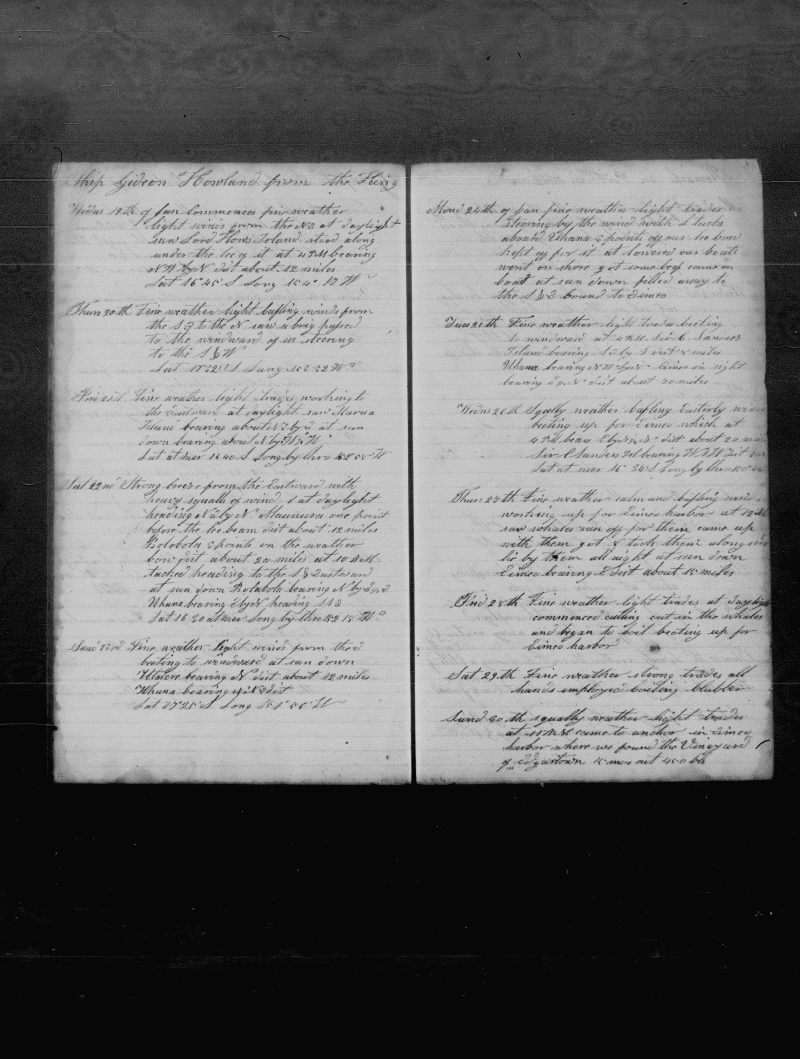 Ship Gideon Howland from the
Wednes 19th of Jan Commences fine weather
light winds from the NE at daylight
saw Lord Hows Island stood along
under the lee of it at 4 PM bearing
NW by N dist about 12 miles
Lat 16° 45' S Long 154° 17 W
Thurs 20th Fine weather light bafling winds from
the S E to the N saw a brig passed
to the windward of us steering
to the S & W
Lat 17° 32 S Long 153° 32 W
Frid 21st Fine weather light trades working to
the Eastward at daylight saw Marua
Island bearing about N E by E at sun
down bearing about N by W ½ W
Lat at mer 16 40 S Long by thro 152 55 W
Sat 22nd Strong breeze from the Eastward with
heavy squalls of wind & at daylight
heading N E by N Maurua one point
before the lee beam dist about 12 miles
Bolobola 2 points on the weather
bow dist about 20 miles at 10 AM
tacked heading to the S & Eastward
at sun down Bolabola bearing N by E
Uhana bearing E by N heading S S E
Lat 16 50 at mer Long by thro 152 15 W
Sund 23rd Fine weather light winds from the
beeting to windward at sun down
bearing N dist about 12 miles
Uhana bearing dist
Lat 17° 25' S Long 151° 56' W
Mond 24th of Jan fine weather light trades
steering by the wind with L tacks
aboard Uhana 2 points off our lee bow
kept off for it at lowered our boats
went on shore got some beef came on
boat at sun down filled away to
the S & E bound to Eimeo
Tues 25th Fine weather light trades beeting
to windward at 4 PM Sir C Sanders
Island bearing S dist miles
Uhana bearing Eimeo in sight
bearing dist about 70 miles
Wednes 26th Sqally weather bafling Easterly winds
beeting up for Eimeo which at
4 PM bears dist about 20 miles
Sir C Sanders Isl bearing W dist
Lat at mer S Long by thro
Thurs 27th Fine weather calm and bafling winds
working up for Eimeo harbor at
saw whales run off for them came up
with them got & took them along side
lie by them all night at sun down
Eimeo bearing E dist about 15 miles
Frid 28th Fine weather light trades at daylight
commenced cutting cut in the whales
and began to boil beeting up for
Eimeo harbor
Sat 29th Fine weather strong trades all
hands employed boiling blubber
Sund 30th squally weather light trades
at AM came to anchor in Eimeo
harbor where we found the Vineyard
of Edgartown 15 mos out 450 bbls